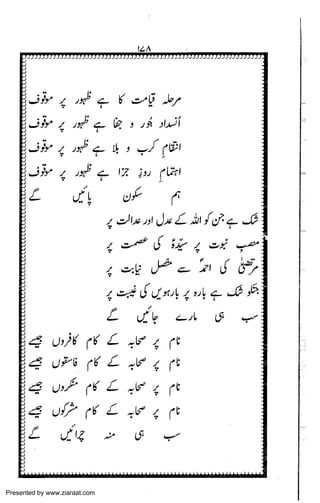 ۱۷۸
مرحلہ قیامت کا ہے ظہور پر موقوف
اُنسداد جَور و جفا ہے ظہور پر موقوف
انتقامِ کرب و بلا ہے ظہور پر موقوف
اہتمام روزِ جزا ہے ظہور پر موقوف
ہم سکون پائیں گے
شک ہے جن کو اللہ کے عدل اور عدالت پر
منصبِ نبوت پر سیّدہؑ کی عصمت پر
مرتضیٰؑ کی احمدؐ سے متصل نیابت پر
جنکو شک ہے بارہ پر بارہویں کی غیبت پر
سب ہی مارے جائیں گے
نام پر صحابہ کے کام کافروں جیسے
نام پر صحابہ کے کام فاسقوں جیسے
نام پر صحابہ کے کام منکروں جیسے
نام پر صحابہ کے کام مشرکوں جیسے
سب ہی منہ چرائیں گے
Presented by www.ziaraat.com